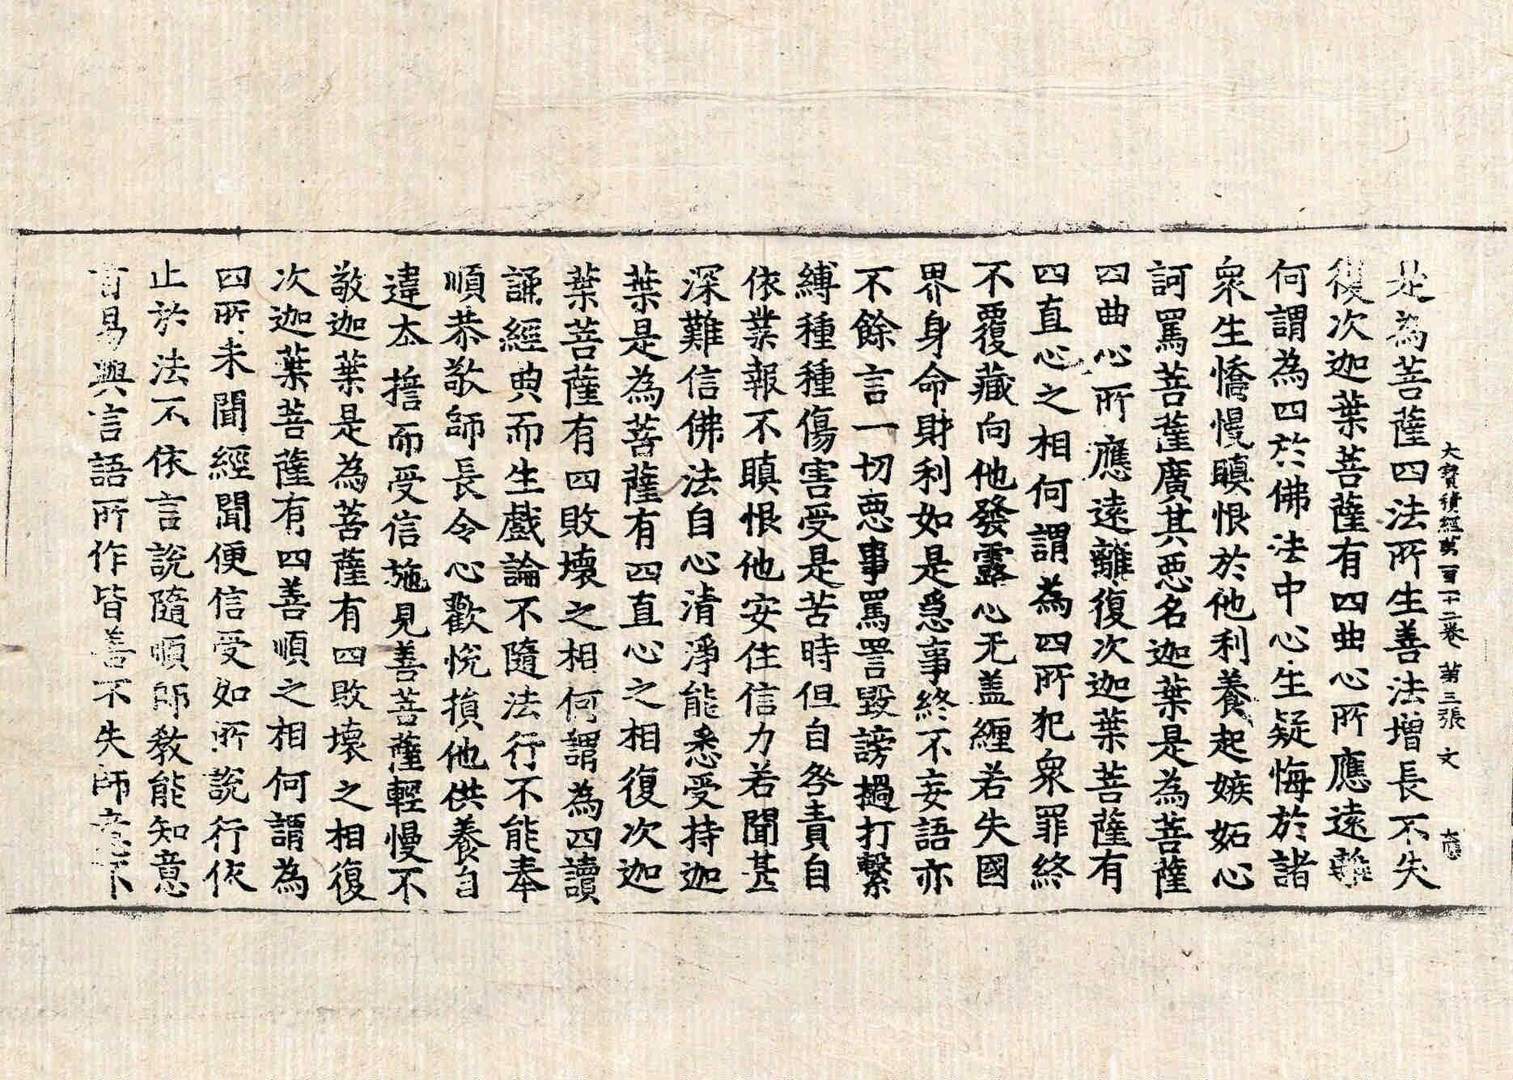 大寶積經第一百一十二卷 第三張 文 應
是為菩薩四法所生善法增長不失
復次迦葉菩薩有四曲心所應遠離
何謂為四於佛法中心生疑悔於諸
衆生憍慢瞋恨於他利養起嫉妬心
訶罵菩薩廣其惡名迦葉是為菩薩
四曲心所應遠離復次迦葉菩薩有
四直心之相何謂為四所犯衆罪終
不覆藏向他發露心无盖纏若失國
界身命財利如是急事終不妄語亦
不餘言一切惡事罵詈毀謗撾打繫
縛種種傷害受是苦時但自咎責自
依業報不瞋恨他安住信力若聞甚
深難信佛法自心清淨能悉受持迦
葉是為菩薩有四直心之相復次迦
葉菩薩有四敗壞之相何謂為四讀
誦經典而生戲論不隨法行不能奉
順恭敬師長令心歡悅損他供養自
違本誓而受信施見善菩薩輕慢不
敬迦葉是為菩薩有四敗壞之相復
次迦葉菩薩有四善順之相何謂為
四所未聞經聞便信受如所說行依
止於法不依言說隨順師教能知意
旨易與言語所作皆善不失師意不